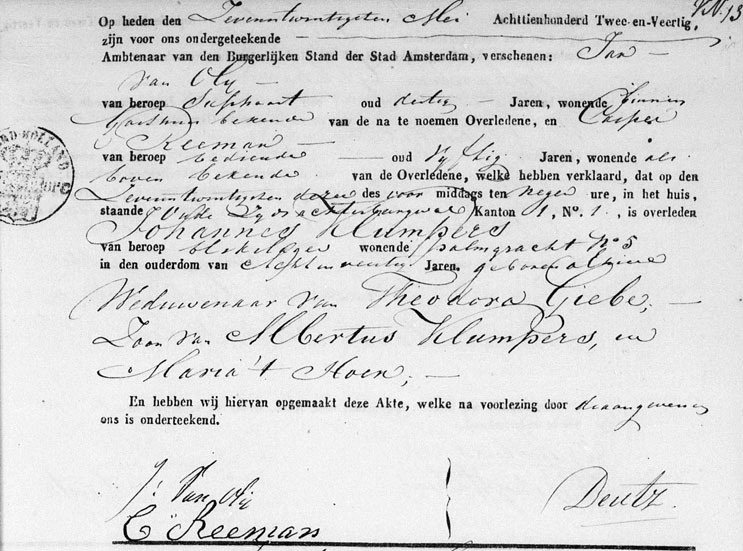 VN. 13
Op heden den Zevenentwintigsten Mei Achttienhonderd Twee-en-Veertig,
zijn voor ons ondergeteekende
Ambtenaar van den Burgerlijken Stand der Stad Amsterdam, verschenen: Jan
van Oly
van beroep Suppoost oud dertig Jaren, wonende binnen
Gasthuis bekende van de na te noemen Overledene, en Casper
Keeman
van beroep bediende oud vijftig Jaren, wonende als
boven bekende van de Overledene, welke hebben verklaard, dat op den
Zevenentwintigsten dezer des voor middags ten negen ure, in het huis,
staande Oude Zyds achterburgwal Kanton 1, No. 1, is overleden
Johannes Klumpers
van beroep wonende palmgracht No 5
in den ouderdom van Acht en veertig Jaren, geboren alhier
Weduwenaar van Theodora Giebe,
Zoon van Albertus Klumpers, en
Maria 't Hoen,
En hebben wij hiervan opgemaakt deze Akte, welke na voorlezing door
ons is onderteekend.
J. Van Oly
C Keeman
Deutz.